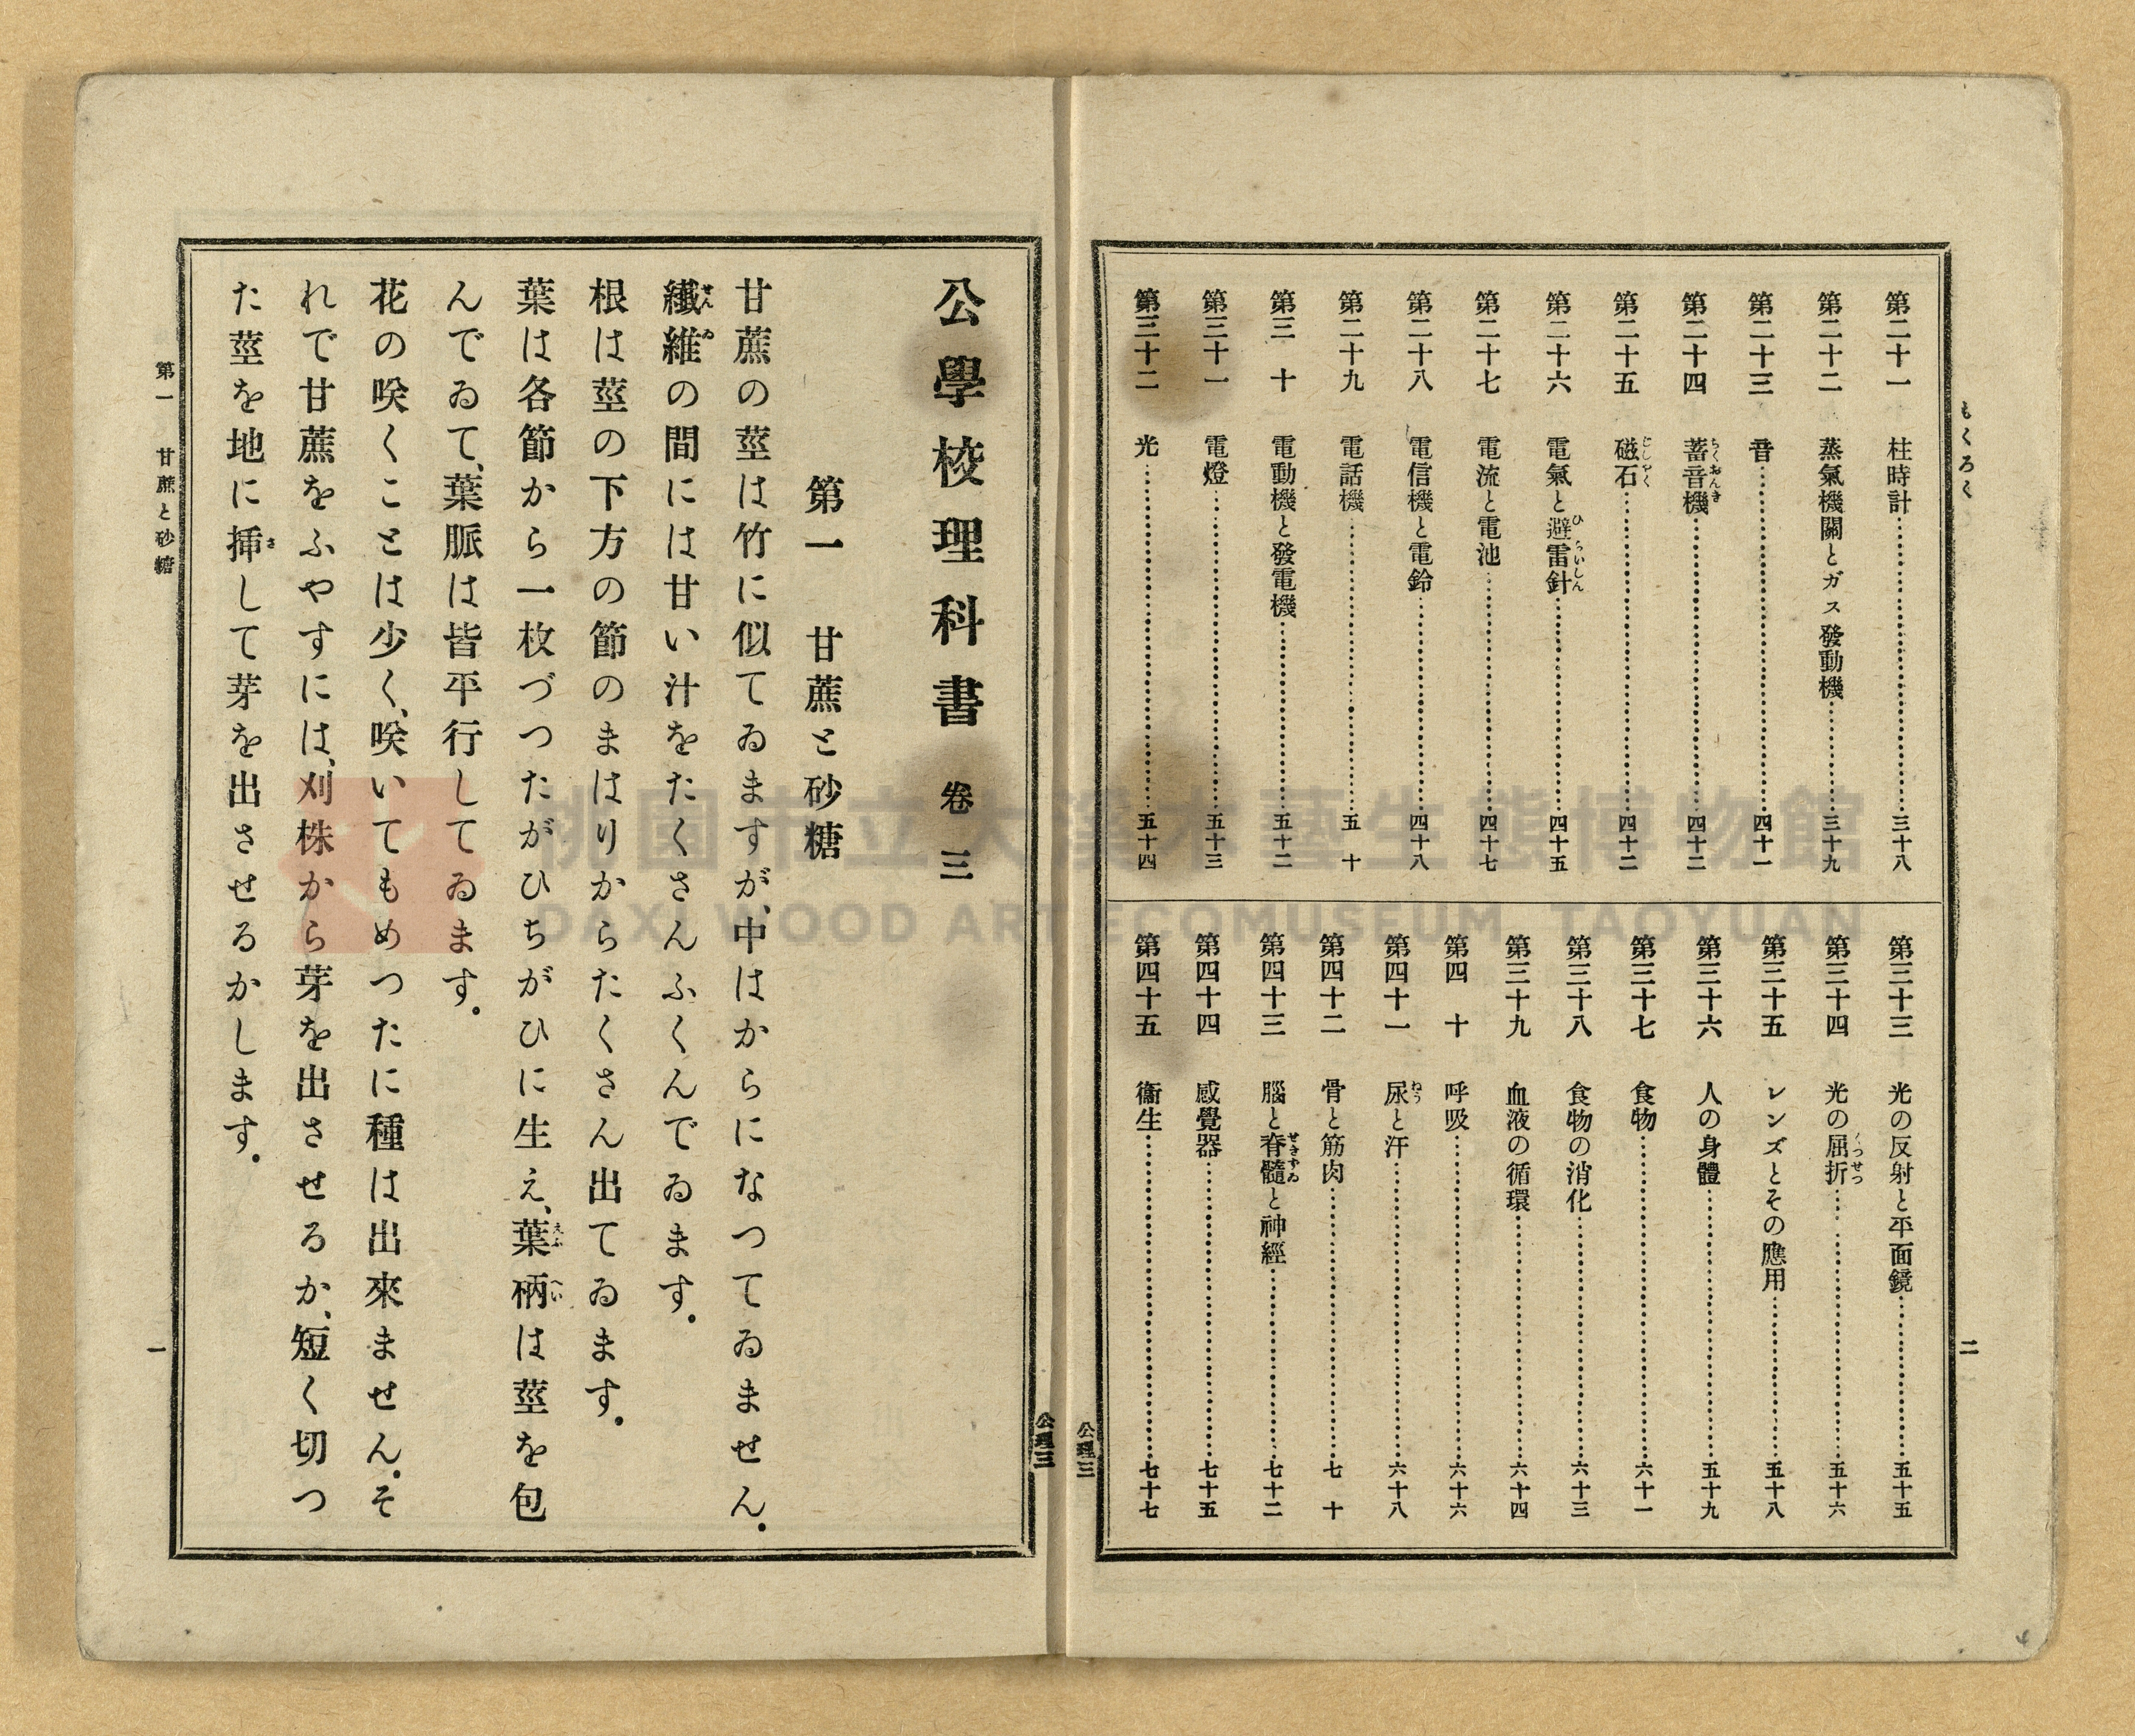 もくろく
二
第二十一 柱時計……三十八
第二十二 蒸氣機關とガス發動機……三十九
第二十三 音……四十一
第二十四 蓄音機……四十二
ちくおんき
第二十五 磁石……四十二
じしやく
第二十六 電氣と避雷針……四十五
ひらいしん
第二十七 電流と電池……四十七
第二十八 電信機と電鈴……四十八
第二十九 電話機……五十
第三十 電動機と發電機……五十二
第三十一 電燈……五十三
第三十二 光……五十四
第三十三 光の反射と平面鏡……五十五
第三十四 光の屈折……五十六
くつせつ
第三十五 レンズとその應用……五十八
第三十六 人の身體……五十九
第三十七 食物……六十一
第三十八 食物の消化……六十三
第三十九 血液の循環……六十四
第四十 呼吸……六十六
第四十一 尿と汗……六十八
ねう
第四十二 骨と筋肉……七十
第四十三 腦と脊髓と神經……七十二
せきずゐ
第四十四 感覺器……七十五
第四十五 衞生……七十七
公理三
公理三
公學校理科書 卷三
第一 甘蔗と砂糖
甘蔗の莖は竹に似てゐますが、中はからになつてゐません。
纖維の間には甘い汁をたくさんふくんでゐます。
せんゐ
根は莖の下方の節のまはりからたくさん出てゐます。
葉は各節から一枚づつたがひちがひに生え、葉柄は莖を包
えふへい
んでゐて、葉脈は皆平行してゐます。
花の咲くことは少く、咲いてもめつたに種は出來ません。そ
れで甘蔗をふやすには、刈株から芽を出させるか、短く切つ
た莖を地に挿して芽を出させるかします。
さ
第一 甘蔗と砂糖
一
桃園市立大溪木藝生態博物館
DAXI WOOD ART ECOMUSEUM, TAOYUAN